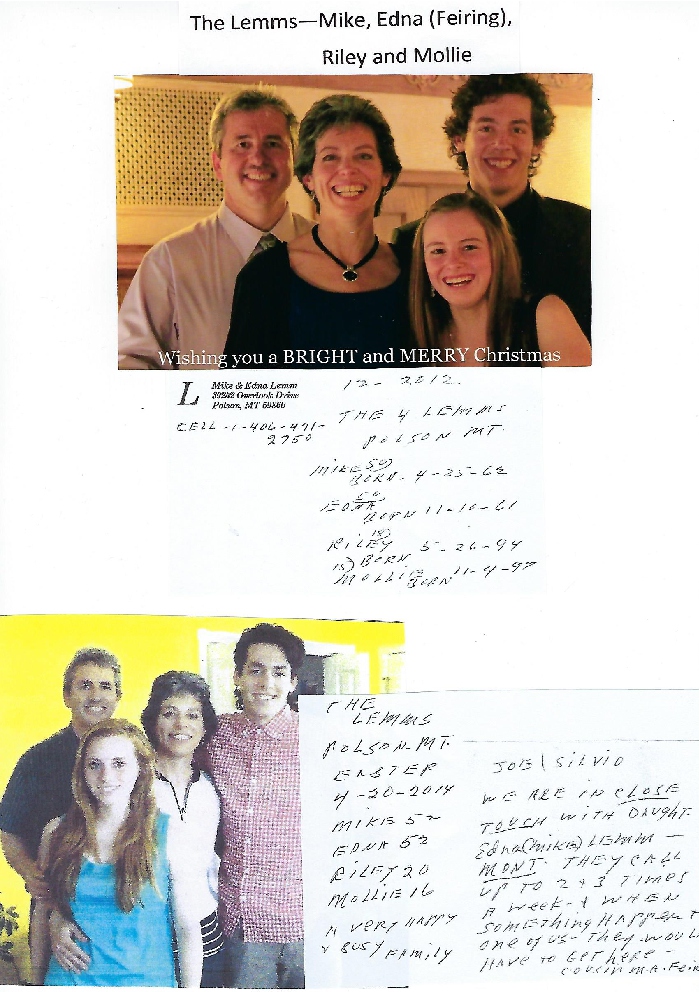 The Lemms—Mike, Edna (Feiring),
Riley and Mollie
Wishing you a BRIGHT and MERRY Christmas
L
Mike & Edna Lemm
Overlook Drive
Polson, MT 59860
CELL-1-406-471-
2750
12- 2012.
THE 4 LEMMS
POLSON MT.
MIKE 50)
BORN- 4-25-62
50
EDNA
BORN 11-10-61
18)
RILEY 5-26-94
15) BORN
MOLLIE BORN 11-4-97
THE
LEMMS
POLSON-MT.
EASTER
4-20-2014
MIKE 52
EDNA 52
RILEY 20
MOLLIE 16
A VERY HAPPY
& BUSY FAMILY
JOE \ SILVIO
WE ARE IN CLOSE
TOUCH WITH DAUGHT
Edna(MIKE) LEMM —
MONT- THEY CALL
UP TO 2 & 3 TIMES
A WEEK- & WHEN
SOMETHING HAPPEN T
ONE OF US- THEY WOUL
HAVE TO GET HERE -
COUSIN M.A. Fei